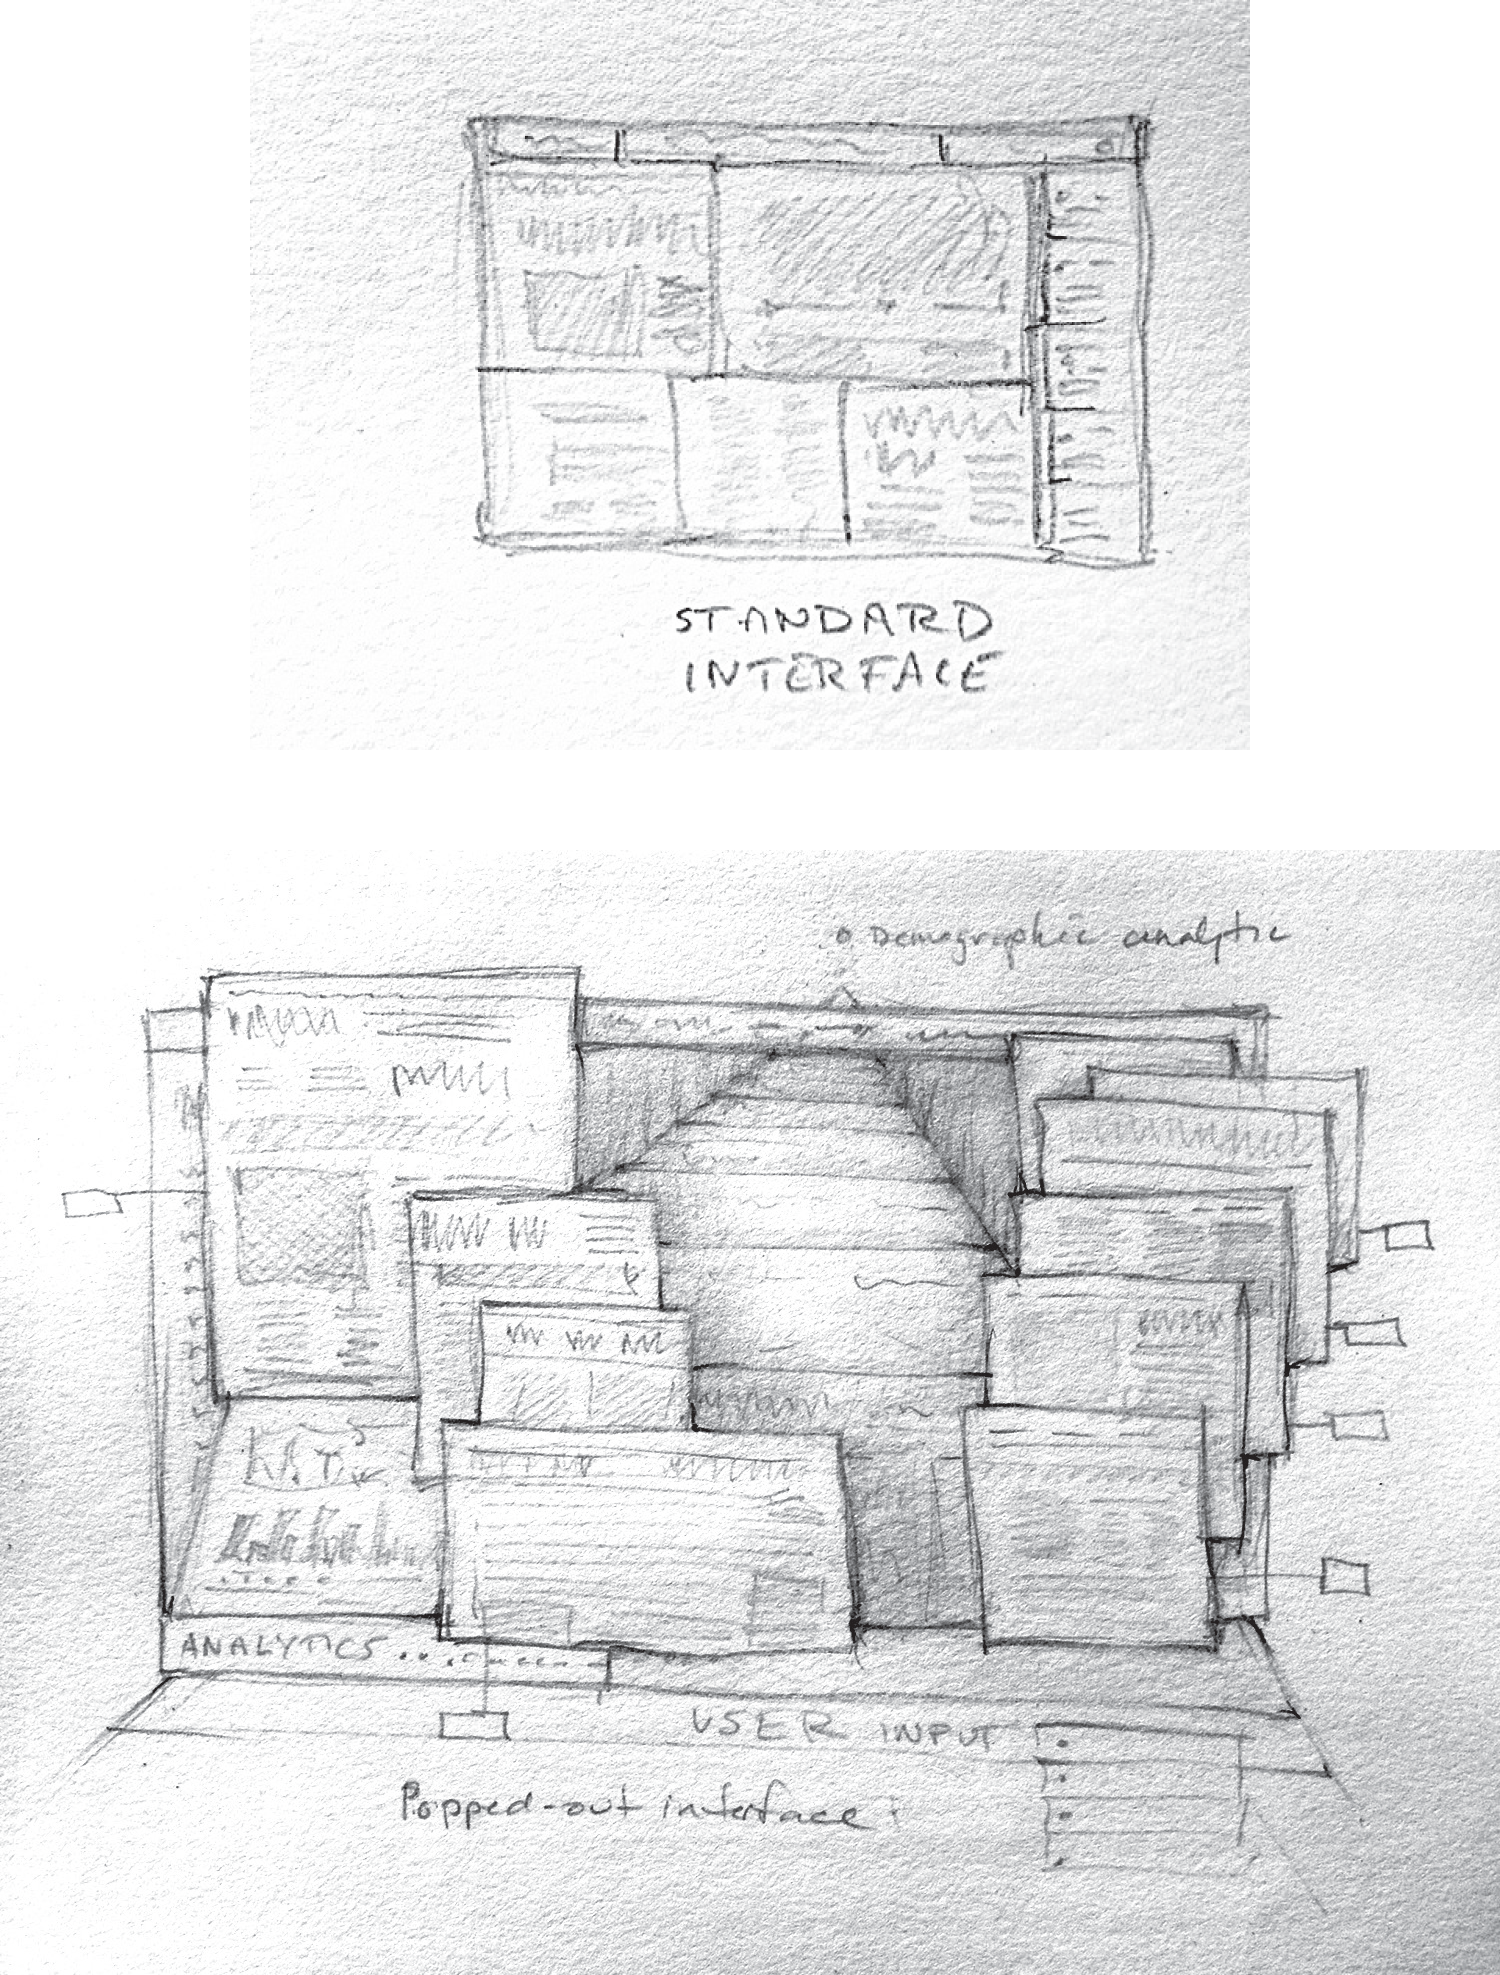 STANDARD
INTERFACE
Demographic analytic
ANALYTICS...
USER INPUT
Popped-out interface: